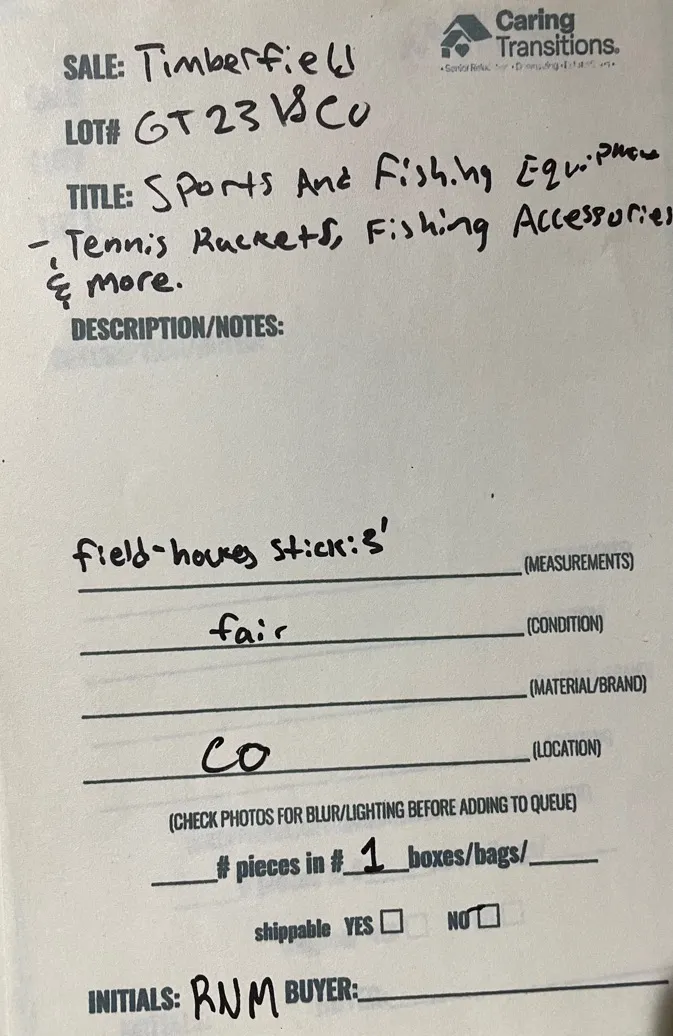 Caring
Transitions®
SALE: Timberfield
LOT# GT23 CO
TITLE: Sports And Fishing Equipment
- Tennis Rackets, Fishing Accessories
& more.
DESCRIPTION/NOTES:
field-hockey stick: 3' (MEASUREMENTS)
fair (CONDITION)
(MATERIAL/BRAND)
CO (LOCATION)
(CHECK PHOTOS FOR BLUR/LIGHTING BEFORE ADDING TO QUEUE)
# pieces in # 1 boxes/bags/
shippable YES NO
INITIALS: RNM BUYER: